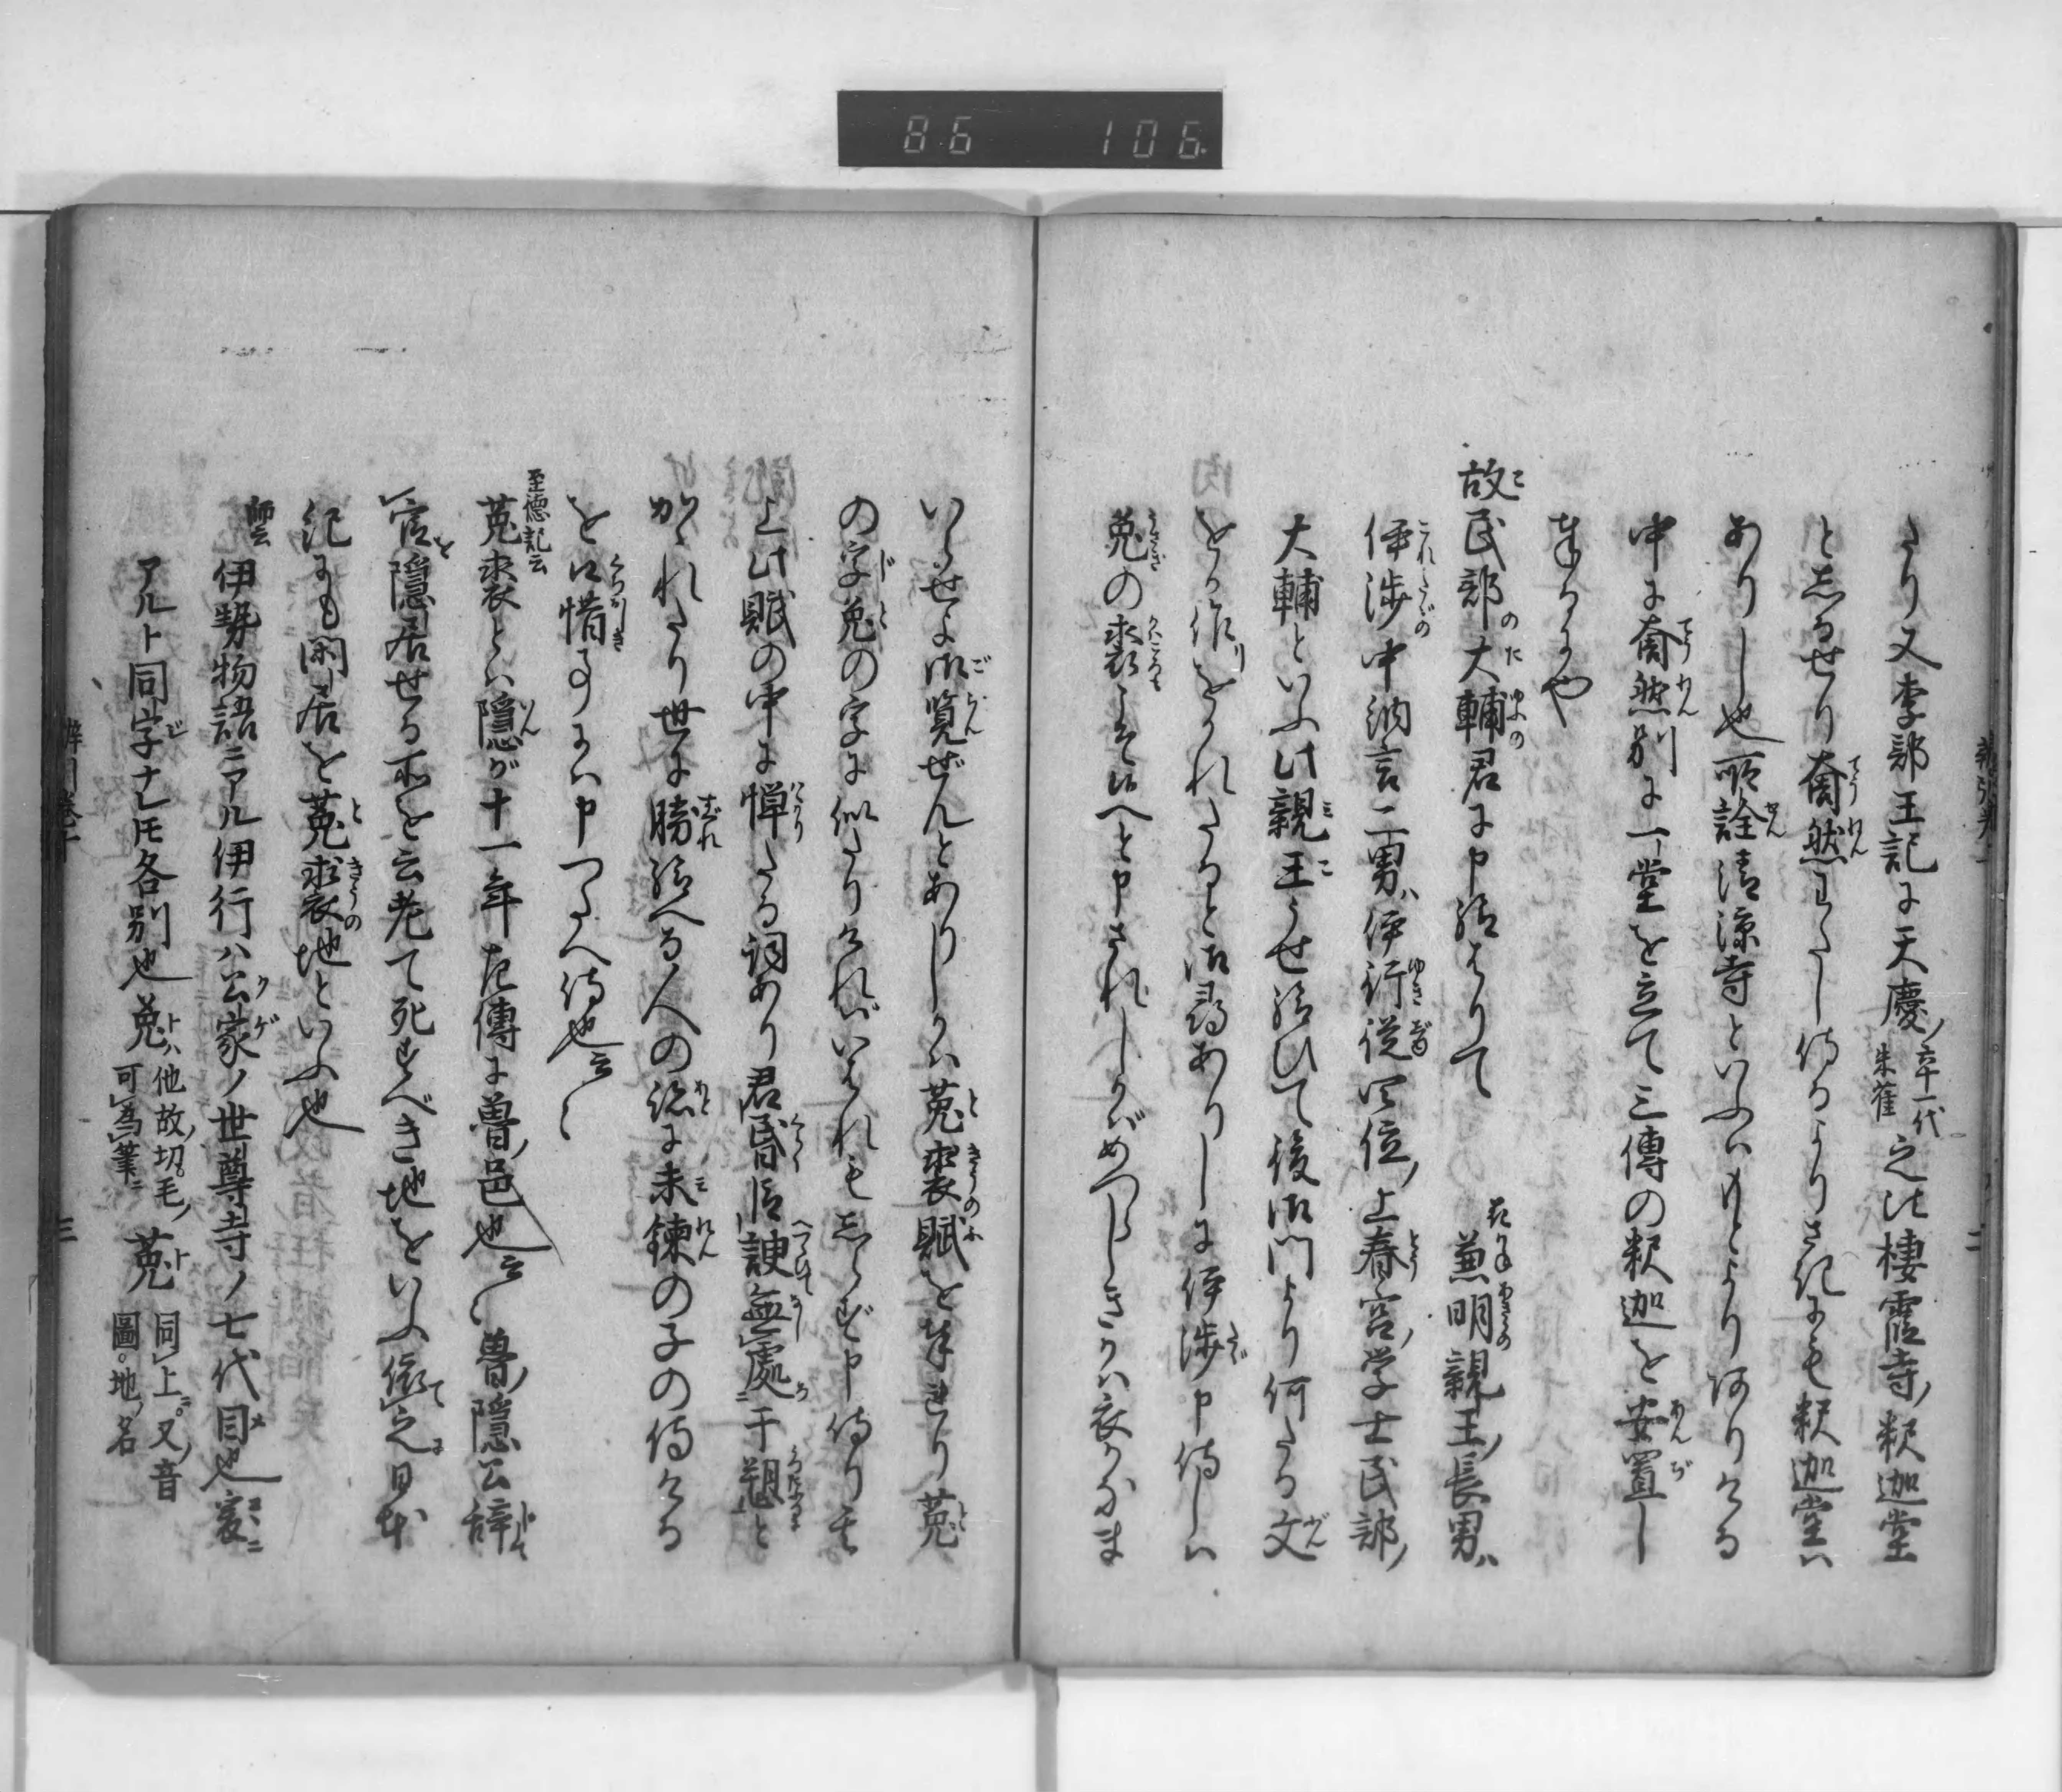 86 106
たり又李部王記に天慶ノ六十一代朱雀之比棲霞寺ノ釈迦堂
としるせり奝然わたし侍るよりさきにも釈迦堂は
ありし也所詮清凉寺といふはもとよりありける
中に奝然別に一堂を立て三傳の釈迦を安置し
奉るにや
故民部大輔君に申給はりて 兼明親王ノ長男ハ
伊渉中納言二男ハ伊行従四位ノ上春宮ノ学士民部ノ
大輔といふ此親王うせ給ひて後御門より何たる文
をか作りをかれたると御尋ありしに伊渉申侍しは
兎の裘こそ候へと申されしかばめづらしきかは衣かなま
いらせよ御覧ぜんとありしかは菟裘賦を奉れり菟
の字兎の字に似たりければいはれもしらず申侍りき
此賦の中に憚たる詞あり君昏臣諛無處于愬と
かゝれたり世に勝給へる人の跡に未練の子の侍ける
を口惜事には申つたへ侍也云〻
至徳記云
菟裘とは隠が十一年左傳に魯ノ邑也云〻魯ノ隠公辞
官隠居せる所を云老て死すべき地をいふ依之日本
紀にも閑居を菟裘地といふ也
師云
伊勢物語ニアル伊行ハ公家ノ世尊寺ノ七代目也爰ニ
アルト同字ナレ𪜈各別也 兎ハ他故ノ切毛ノ可為筆ニ 菟 同上ニ又ノ音圖地ノ名
三